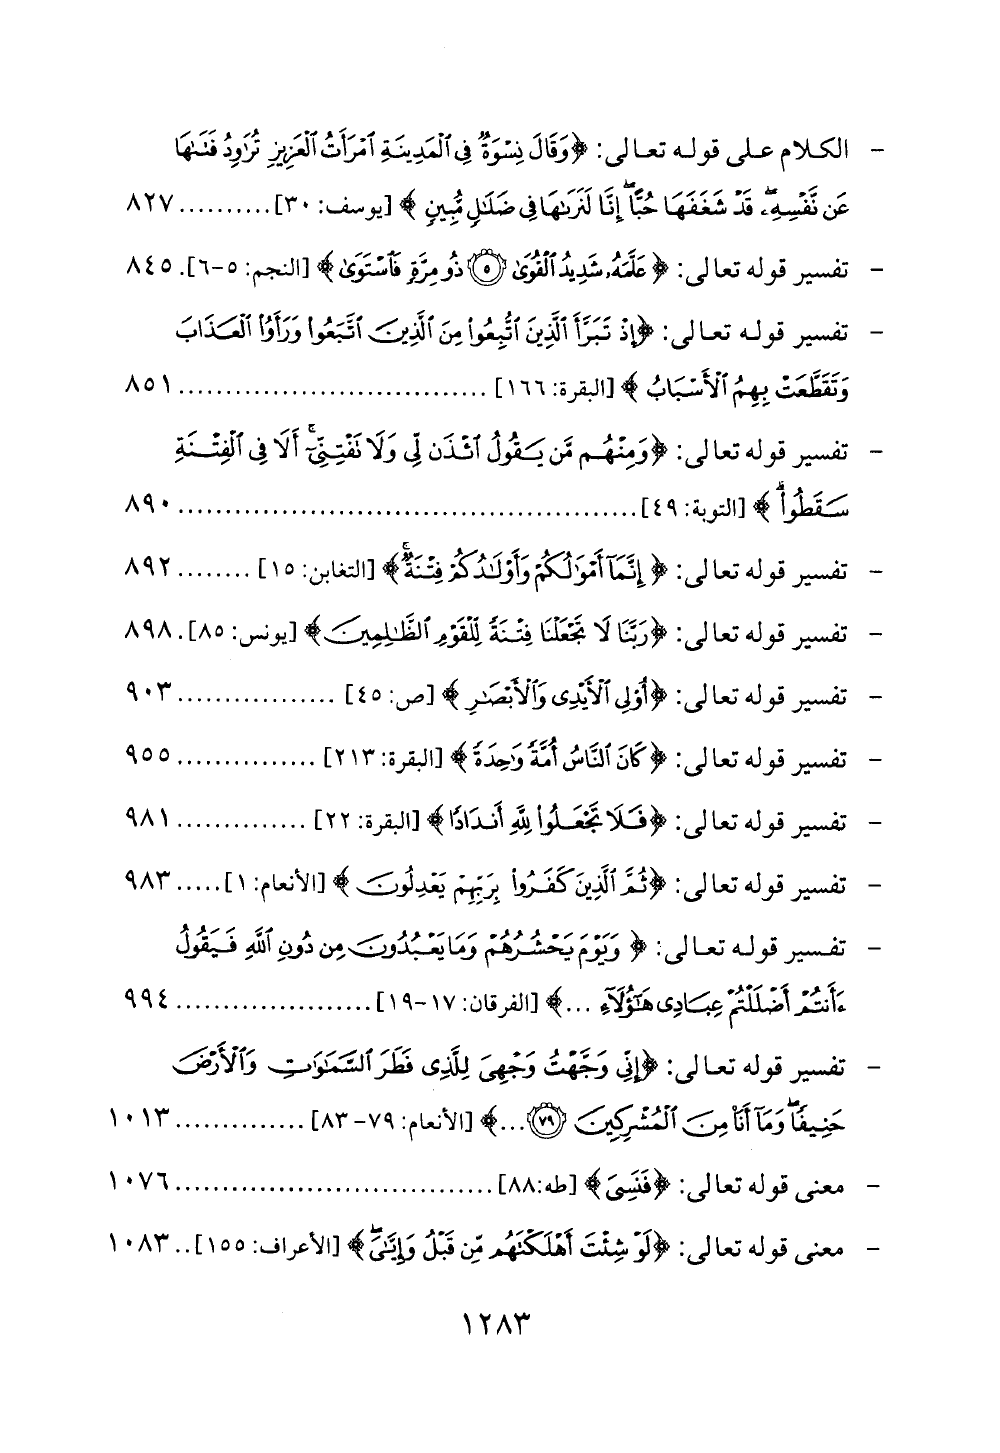 - الكلام على قوله تعالى: ﴿وَقَالَ نِسْوَةٌ فِي ٱلْمَدِينَةِ ٱمْرَأَتُ ٱلْعَزِيزِ تُرَٰوِدُ فَتَىٰهَا
عَن نَّفْسِهِۦۖ قَدْ شَغَفَهَا حُبًّاۖ إِنَّا لَنَرَىٰهَا فِي ضَلَٰلٍ مُّبِينٍ﴾ [يوسف: ٣٠].......... ٨٢٧
- تفسير قوله تعالى: ﴿عَلَّمَهُۥ شَدِيدُ ٱلْقُوَىٰ ٥ ذُو مِرَّةٍ فَٱسْتَوَىٰ﴾ [النجم: ٥-٦]. ٨٤٥
- تفسير قوله تعالى: ﴿إِذْ تَبَرَّأَ ٱلَّذِينَ ٱتُّبِعُوا۟ مِنَ ٱلَّذِينَ ٱتَّبَعُوا۟ وَرَأَوُا۟ ٱلْعَذَابَ
وَتَقَطَّعَتْ بِهِمُ ٱلْأَسْبَابُ﴾ [البقرة: ١٦٦] ............................... ٨٥١
- تفسير قوله تعالى: ﴿وَمِنْهُم مَّن يَقُولُ ٱئْذَن لِّي وَلَا تَفْتِنِّيٓۚ أَلَا فِي ٱلْفِتْنَةِ
سَقَطُوا۟ۗ﴾ [التوبة: ٤٩].............................................. ٨٩٠
- تفسير قوله تعالى: ﴿إِنَّمَآ أَمْوَٰلُكُمْ وَأَوْلَٰدُكُمْ فِتْنَةٌۚ﴾ [التغابن: ١٥] ........ ٨٩٢
- تفسير قوله تعالى: ﴿رَبَّنَا لَا تَجْعَلْنَا فِتْنَةً لِّلْقَوْمِ ٱلظَّٰلِمِينَ﴾ [يونس: ٨٥]. ٨٩٨
- تفسير قوله تعالى: ﴿أُو۟لِي ٱلْأَيْدِي وَٱلْأَبْصَٰرِ﴾ [ص: ٤٥] ................. ٩٠٣
- تفسير قوله تعالى: ﴿كَانَ ٱلنَّاسُ أُمَّةً وَٰحِدَةً﴾ [البقرة: ٢١٣] ............... ٩٥٥
- تفسير قوله تعالى: ﴿فَلَا تَجْعَلُوا۟ لِلَّهِ أَندَادًا﴾ [البقرة: ٢٢] .............. ٩٨١
- تفسير قوله تعالى: ﴿ثُمَّ ٱلَّذِينَ كَفَرُوا۟ بِرَبِّهِمْ يَعْدِلُونَ﴾ [الأنعام: ١]..... ٩٨٣
- تفسير قوله تعالى: ﴿وَيَوْمَ يَحْشُرُهُمْ وَمَا يَعْبُدُونَ مِن دُونِ ٱللَّهِ فَيَقُولُ
ءَأَنتُمْ أَضْلَلْتُمْ عِبَادِي هَٰٓؤُلَآءِ ...﴾ [الفرقان: ١٧-١٩].................... ٩٩٤
- تفسير قوله تعالى: ﴿إِنِّي وَجَّهْتُ وَجْهِيَ لِلَّذِي فَطَرَ ٱلسَّمَٰوَٰتِ وَٱلْأَرْضَ
حَنِيفًاۖ وَمَآ أَنَا۠ مِنَ ٱلْمُشْرِكِينَ ٧٩ ...﴾ [الأنعام: ٧٩-٨٣].............. ١٠١٣
- معنى قوله تعالى: ﴿فَنَسِيَ﴾ [طه:٨٨] ................................ ١٠٧٦
- معنى قوله تعالى: ﴿لَوْ شِئْتَ أَهْلَكْتَهُم مِّن قَبْلُ وَإِيَّٰيَۖ﴾ [الأعراف: ١٥٥].. ١٠٨٣
١٢٨٣